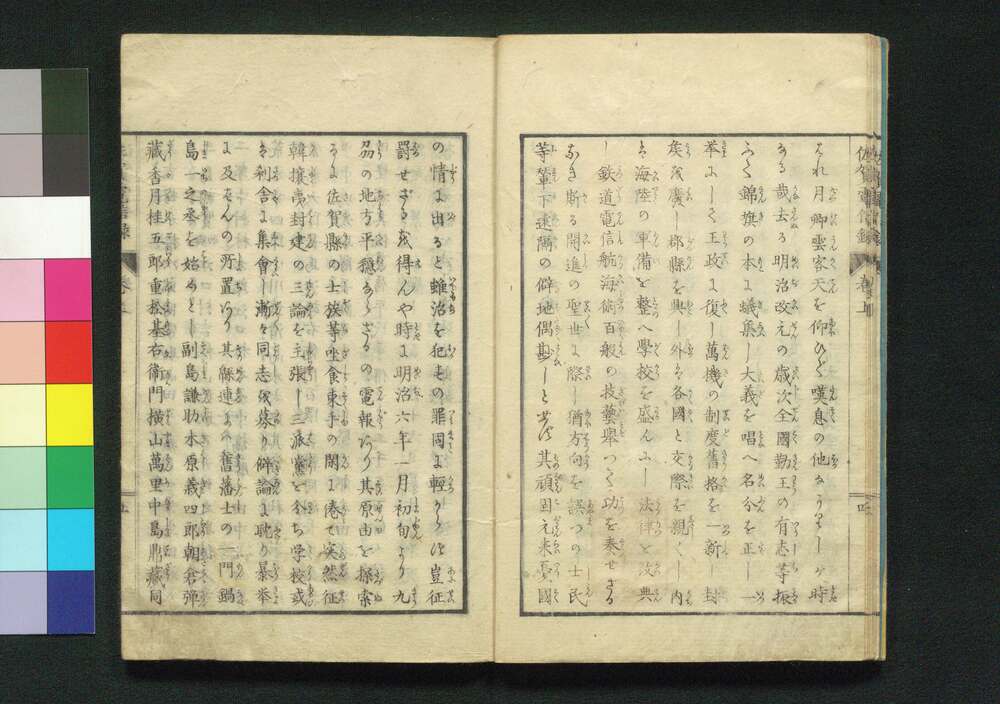 それ月卿雲客天を仰ひで嘆息の他なうりしが時
ある哉去る明治改元の歳次全國勤王の有志等振
ふて錦旗の本に蟻集し大義を唱へ名分を正し一
挙にして王政に復し萬機の制度舊格を一新し封
矣を廢し郡縣を興し外は各國と交際を親くし内
は海陸の軍備を整へ學校を盛んにし法律を改典
し鉄道電信航海術百般の技藝舉つて功を奏せざる
なき斯る開進の聖世に際し猶方向を誤つの士民
等輦下遠隔の僻地偶勘しとせず其頑固元来憂國
の情に出ると雖治を犯すの罪同に輕からず豈征
罸せざるを得んや時に明治六年一月初旬より九
州の地方平穏ならざるの電報あり其原由を探索
るに佐賀縣の士族等坐食束手の閑に倦て突然征
韓攘夷封建の三論を主張し三派黨を分ち学校或
は利舎に集會し漸々同志を募り僻論に耽り暴挙
に及ばんの所置あり其縣連には舊藩士の一門鍋
島一之丞を始めとし副島謙助木原義四郎朝倉弾
藏香月桂五郎重松基右衛門横山萬里中島鼎藏同